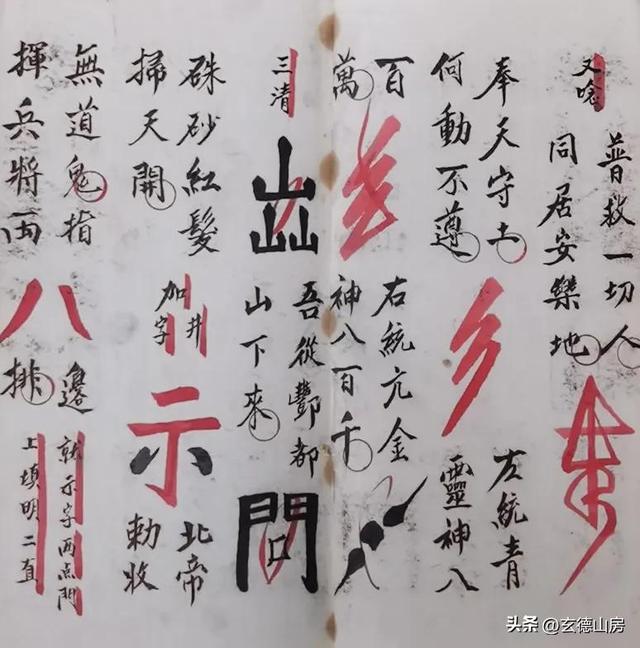 又唸
普救一切人
同居安樂地
奉天守土
何動不遵
左統青
靈神八
百
萬
右統亢金
神八百千
三清
吾從酆都
山下來
問
硃砂紅髮
掃天開
井
加字
示
北帝
勅收
無道鬼指
揮兵將両
八
邊
排
就示字両点門
上填明二直
头条 @玄德山房